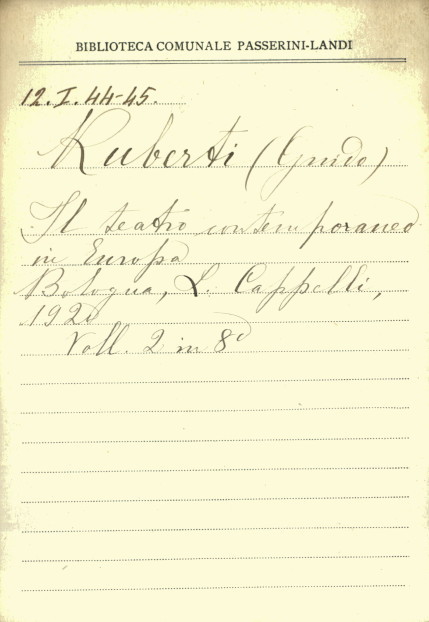 BIBLIOTECA COMUNALE PASSERINI-LANDI
12. I. 44-45.
Ruberti (Guido)
Il teatro contemporaneo
in Europa
Bologna, L. Cappelli,
1920
Voll. 2 in 8°